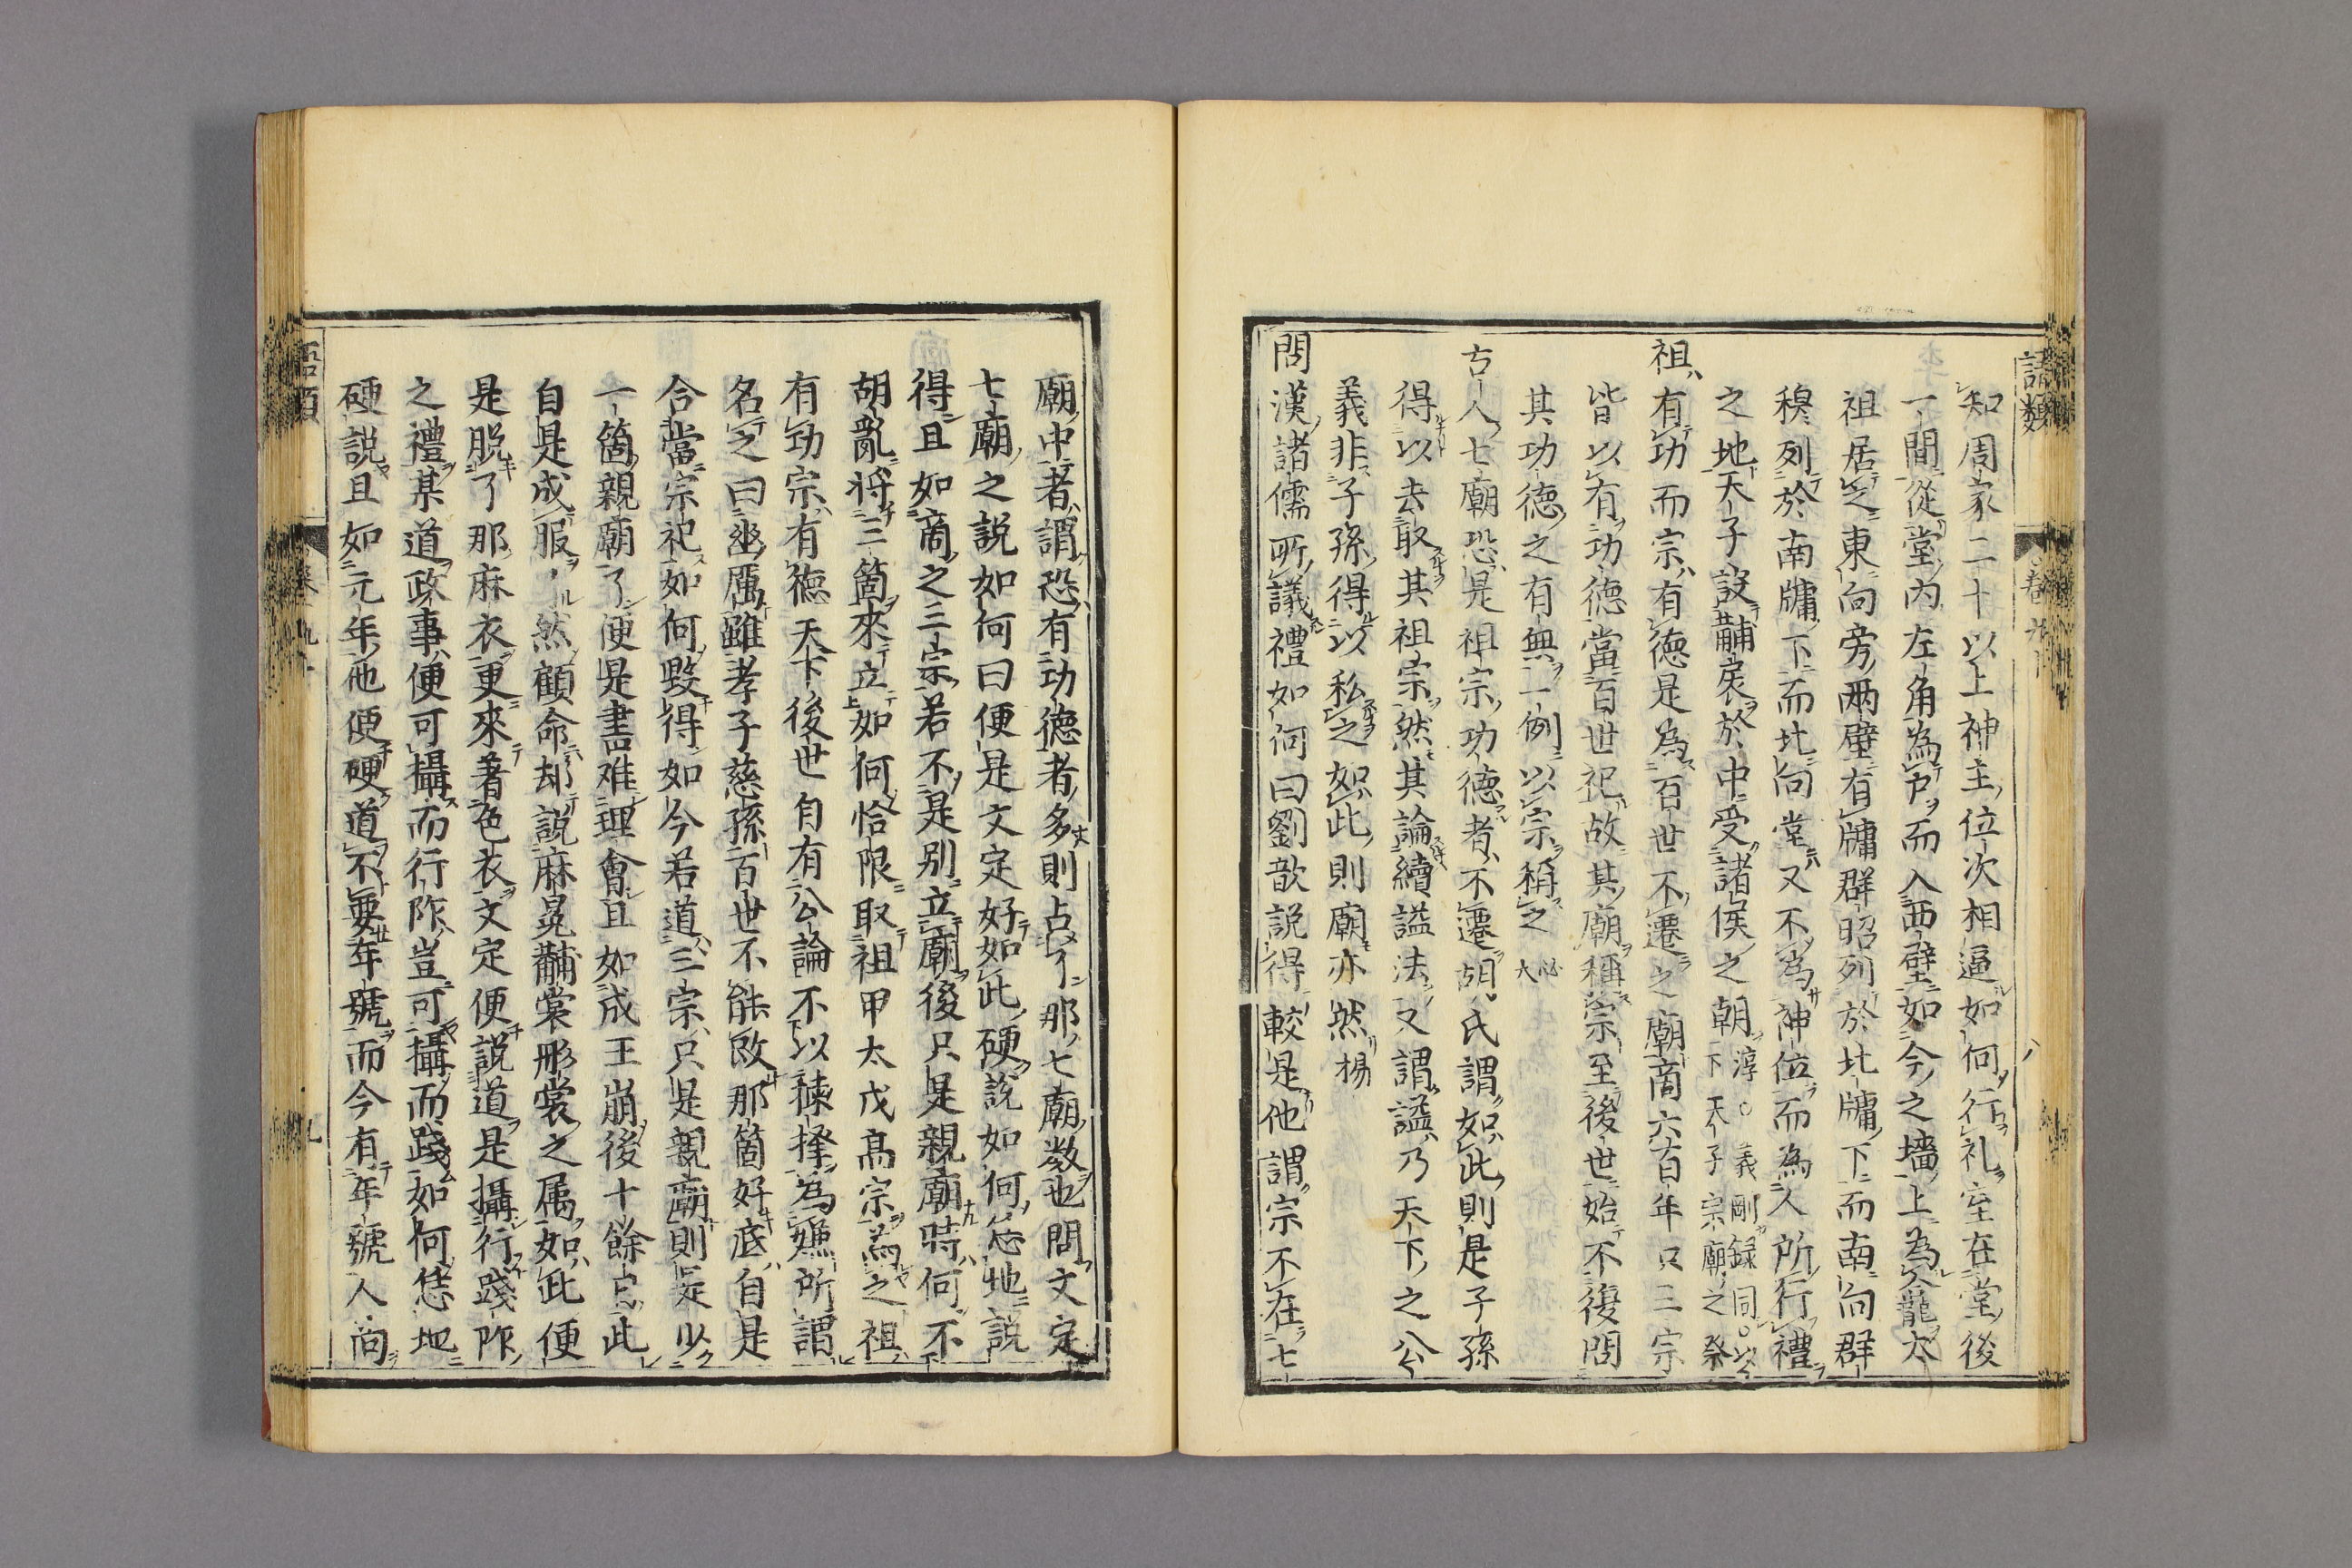 語類
卷九十
八
知周家二十以上神主位次相逼如何行礼室在堂後
一間從堂內左角為戶而入西壁如今之墻上為龕太
祖居之東向旁兩壁有牖群昭列於北牖下而南向群
穆列於南牖下而北向堂又不為神位而為人所行禮
之地天子設黼扆於中受諸侯之朝淳○義剛録同○以
下天子宗廟之祭
祖有功而宗有德是為百世不遷之廟商六百年只三宗
皆以有功德當百世祀故其廟稱宗至後世始不復問
其功德之有無一例以宗稱之必大
古人七廟恐是祖宗功德者不遷胡氏謂如此則是子孫
得以去取其祖宗然其論續謚法又謂謚乃天下之公
義非子孫得以私之如此則廟亦然昜
問漢諸儒所議禮如何曰劉歆説得較是他謂宗不在七
廟中者謂恐有功德者多則占了那七廟数也問文定
七廟之説如何曰便是文定好如此硬説如何恁地説
得且如商之三宗若不是别立廟後只是親廟時何不
胡亂将三箇來立如何恰限取祖甲太戊髙宗為之祖
有功宗有德天下後世自有公論不以揀擇為嫌所謂
名之曰幽厲雖孝子慈孫百世不能改那箇好底自是
合當宗祀如何毀得如今若道三宗只是親廟則是少
一箇親廟了便是書难理會且如成王崩後十餘日此
自是成服了然顧命却説麻冕黼裳彤裳之属如此便
是脱了那麻衣更來著色衣文定便説道是攝行踐阼
之禮某道政事便可攝而行阼豈可攝而踐如何恁地
硬説且如元年他便硬道不要年號而今有年號人尚
語類
卷九十
九